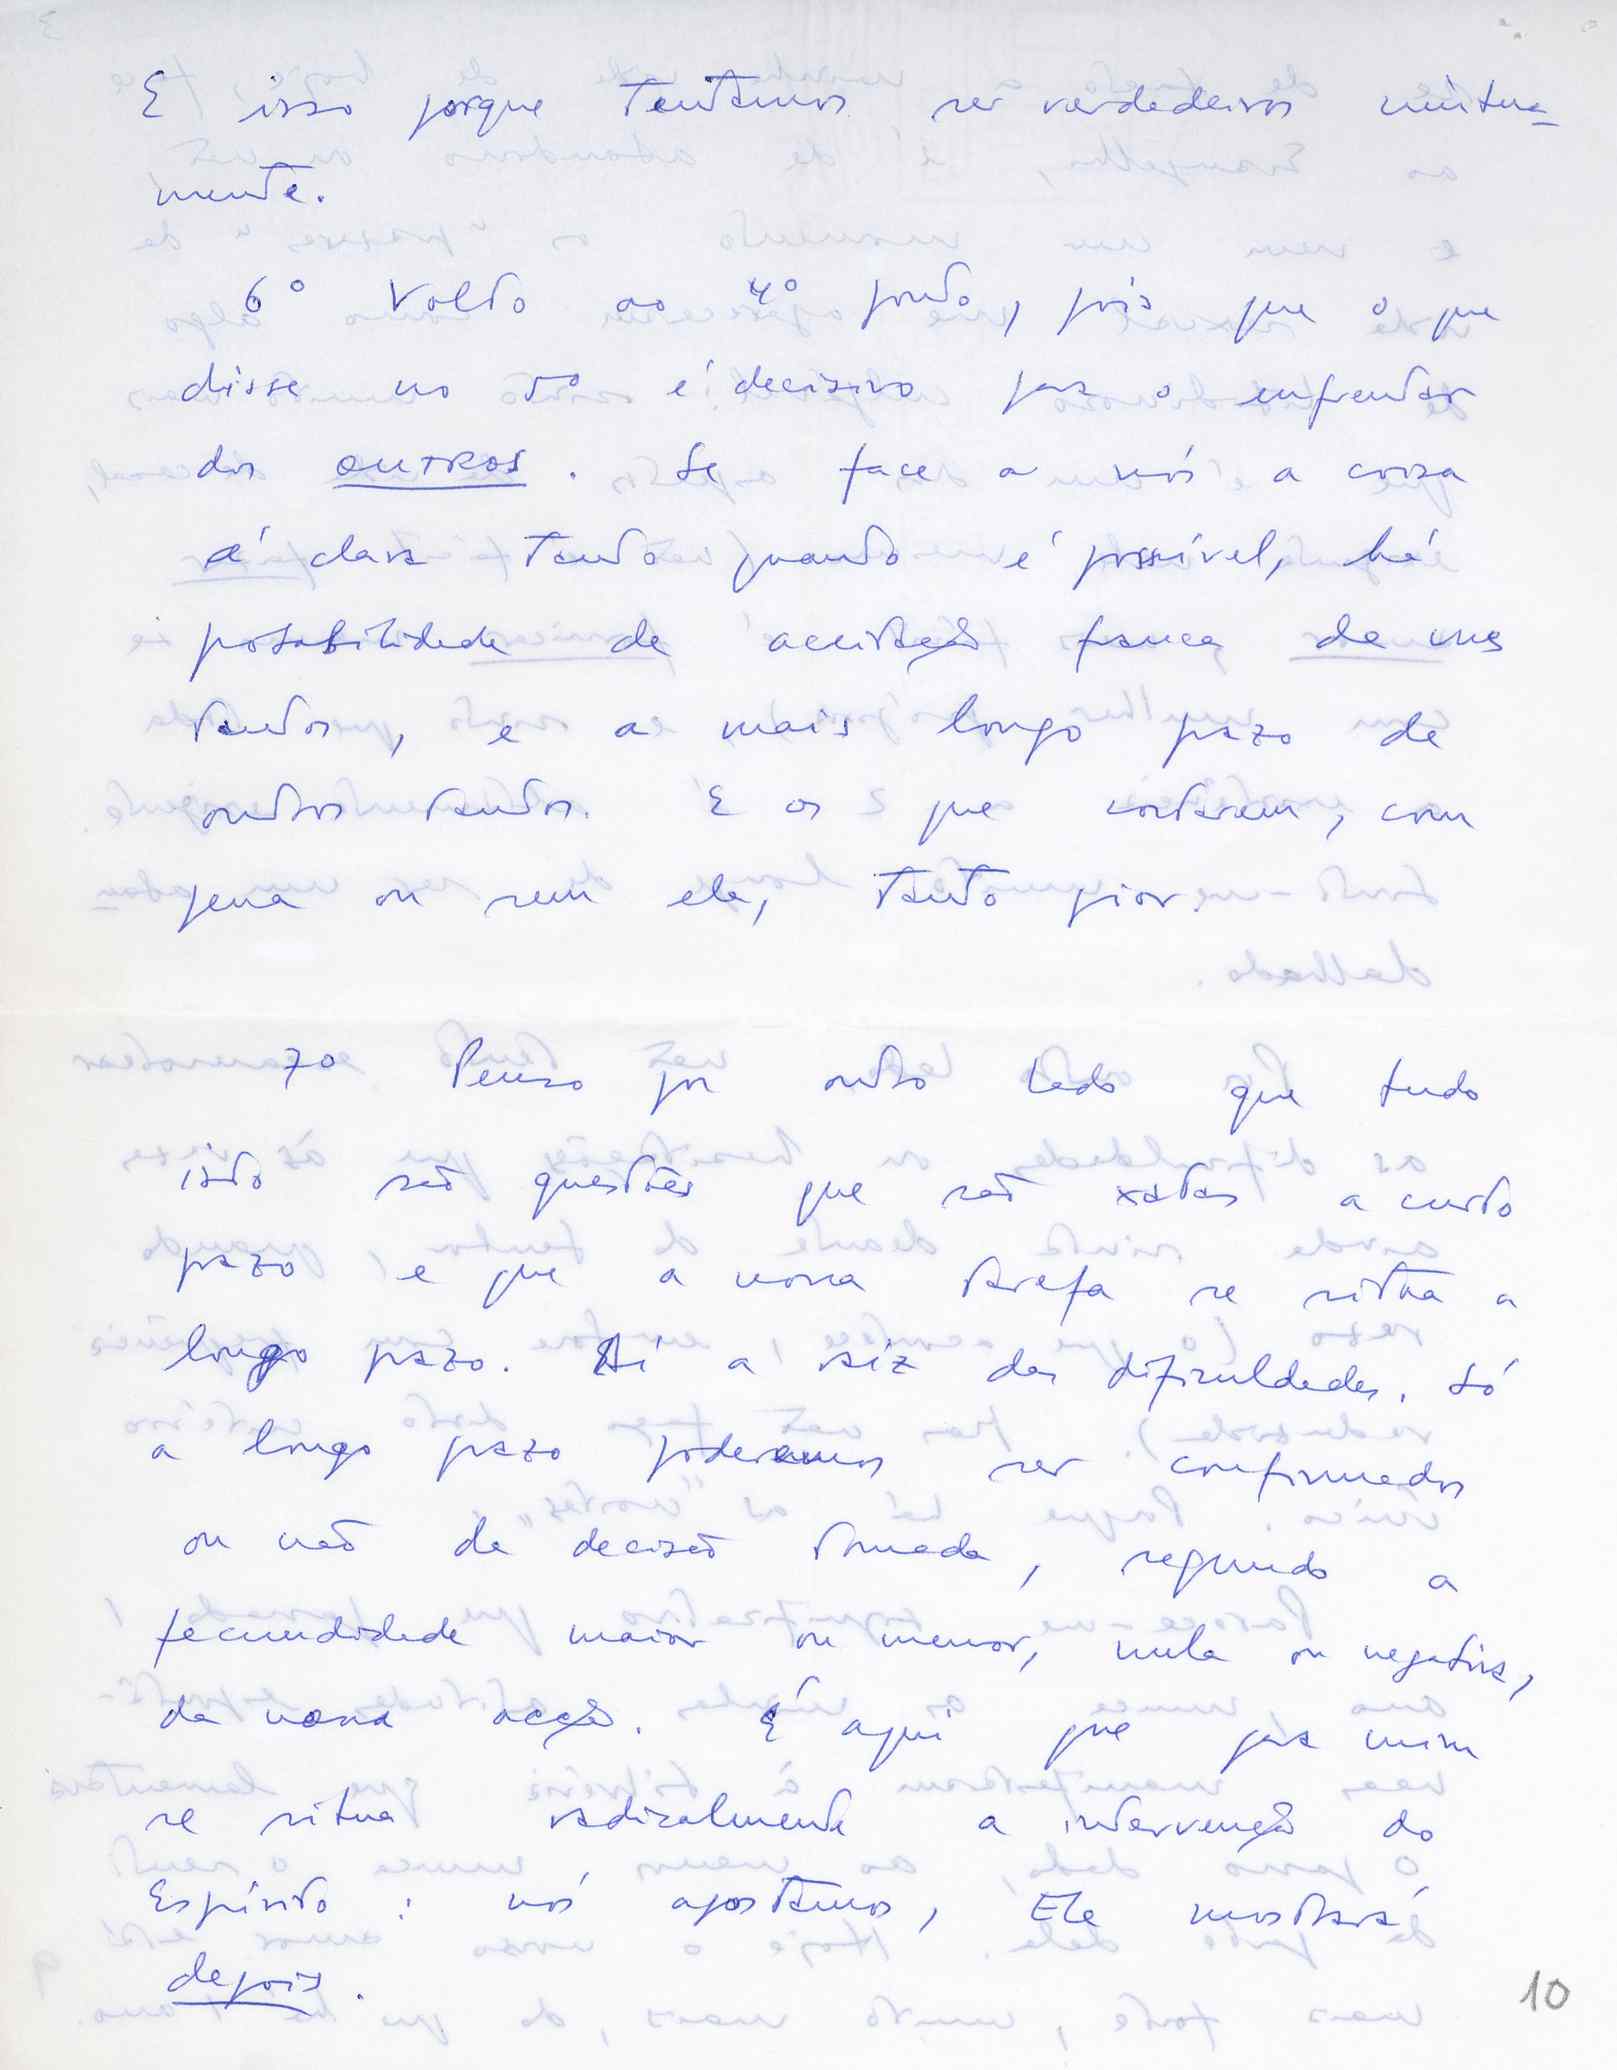 E isso porque tentamos ser verdadeiros mútua=
mente.
6º Volto ao 4º ponto, pois que o que
disse no 5º é decisivo para o enfrentar
dos OUTROS. Se face a nós a coisa
é clara tanto quanto é possível, há
probabilidade de aceitação franca de uns
tantos, e a mais longo prazo de
outros tantos. E os que cortarem, com
pena ou sem ela, tanto pior.
7º Penso por outro lado que tudo
isto são questões que são a curto
prazo e que a nossa tarefa se situa a
longo prazo. Aí a raiz das dificuldades. Só
a longo prazo poderemos ser confirmados
ou não da decisão tomada, segundo a
fecundidade maior ou menor, nula ou negativa,
da nossa acção. É aqui que para mim
se situa radicalmente a intervenção do
Espírito: nós apostamos, Ele mostrará
depois.
10